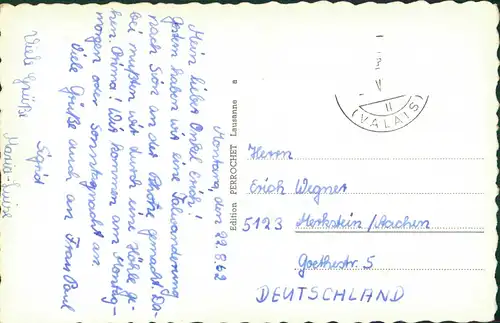 Montana, den 22.8.62
Mein lieber Onkel Erich!
Gestern haben wir eine Talwanderung
nach Sion an der Rhône gemacht. Da-
bei mußten wir durch eine Höhle ge-
hen. Prima! Wir kommen am Montag-
morgen oder Sonntagnacht an.
Viele Grüße auch an Frau Paul
Sigrid
Viele Grüße
Maria-Luise
Edition PERROCHET Lausanne a
11
(VALAIS)
Herrn
Erich Wegner
5123 Merkstein/Aachen
Goethestr. 5
DEUTSCHLAND